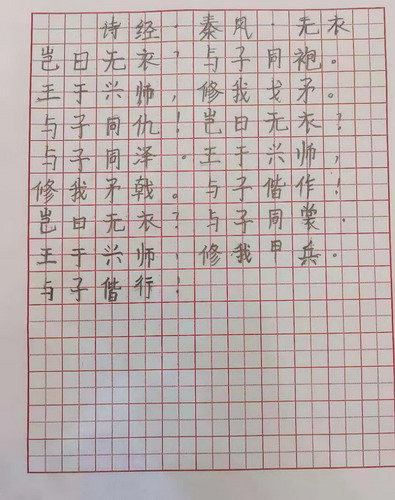 诗经·秦风·无衣
岂曰无衣?与子同袍。
王于兴师,修我戈矛。
与子同仇!岂曰无衣?
与子同泽。王于兴师,
修我矛戟。与子偕作!
岂曰无衣?与子同裳.
王于兴师,修我甲兵。
与子偕行!